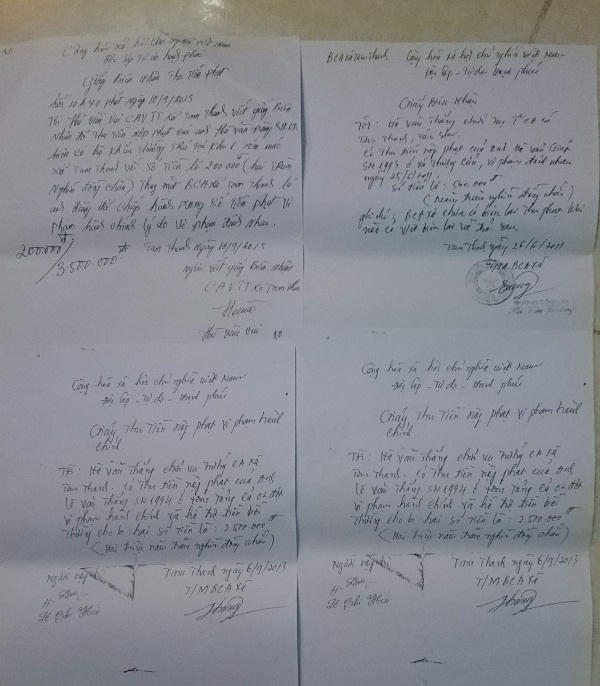 Cộng hòa xã hội chủ nghĩa việt Nam
Độc lập Tự do hạnh phúc
Giấy Biên nhận Thu Tiền phạt
hồi 10 h 40 phút ngày 10/9/2013
Tôi Hà văn CAVTT xã Tam Thanh viết giấy Biên
Nhận để Thu tiền nộp phạt của anh Hà văn
hiện có hộ khẩu thường Trú tại Khu 1
xã Tam Thanh với số Tiền là 200.000đ (hai Trăm
Nghìn đồng chẵn) Thay mặt BCA xã Tam Thanh là
anh đã chấp hành xong số Tiền phạt vi
phạm hành chính lý do vi phạm đánh nhau.
200.000
3.500.000
Tam Thanh ngày 10/9/2013
người viết giấy Biên nhận
CAVTT xã Tam Thanh
Hà văn
BCA xã Tam Thanh
Cộng hòa xã hội chủ nghĩa việt Nam
Độc lập - Tự do hạnh phúc
Giấy Biên nhận
Tôi: Hà văn Thắng chức vụ T CA xã
Tam Thanh, Tân Sơn
Có Thu tiền nộp phạt của anh Hà văn
SN 1993 ở xã, vi phạm đánh nhau
ngày 25/6/2011
Số tiền là: 500.000đ
(năm trăm nghìn đồng chẵn)
ghi chú: BCA xã chưa có biên lai thu phạt khi
nào có viết biên lai và trả sau.
Tam Thanh ngày 26/6/2011
T/M BCA xã
Cộng hòa xã hội chủ nghĩa việt Nam
Độc lập - Tự do - hạnh phúc
Giấy Thu Tiền nộp phạt vi phạm hành
chính
Tôi: Hà văn Thắng chức vụ Trưởng CA xã
Tam Thanh. Có Thu tiền nộp phạt của anh
Hà văn Thắng SN 1994 ở
vi phạm hành chính và hỗ trợ tiền bồi
Thường cho hai số Tiền là: 2.500.000đ
(Hai triệu năm trăm nghìn đồng chẵn)
Người nộp
Tam Thanh ngày 6/9/2013
T/M BCA xã
Cộng hòa xã hội chủ nghĩa việt Nam
Độc lập - Tự do - hạnh phúc
Giấy Thu Tiền nộp phạt vi phạm hành
chính
Tôi: Hà văn Thắng chức vụ Trưởng CA xã
Tam Thanh. Có Thu tiền nộp phạt của anh
Hà văn Thắng SN 1994 ở
vi phạm hành chính và hỗ trợ tiền bồi
Thường cho hai số Tiền là: 2.500.000đ
(Hai triệu năm trăm nghìn đồng chẵn)
Người nộp
Tam Thanh ngày 6/9/2013
T/M BCA xã